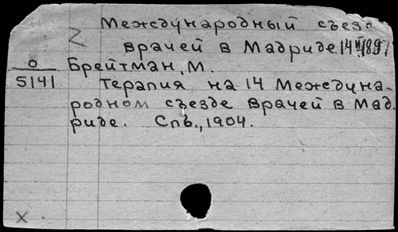 Международный съезд
Z врачей в Мадриде 14
О Брейтман, М.
5141 Терапия на 14 Междуна-
родном съезде врачей в Мад-
риде. Спб., 1904.
x